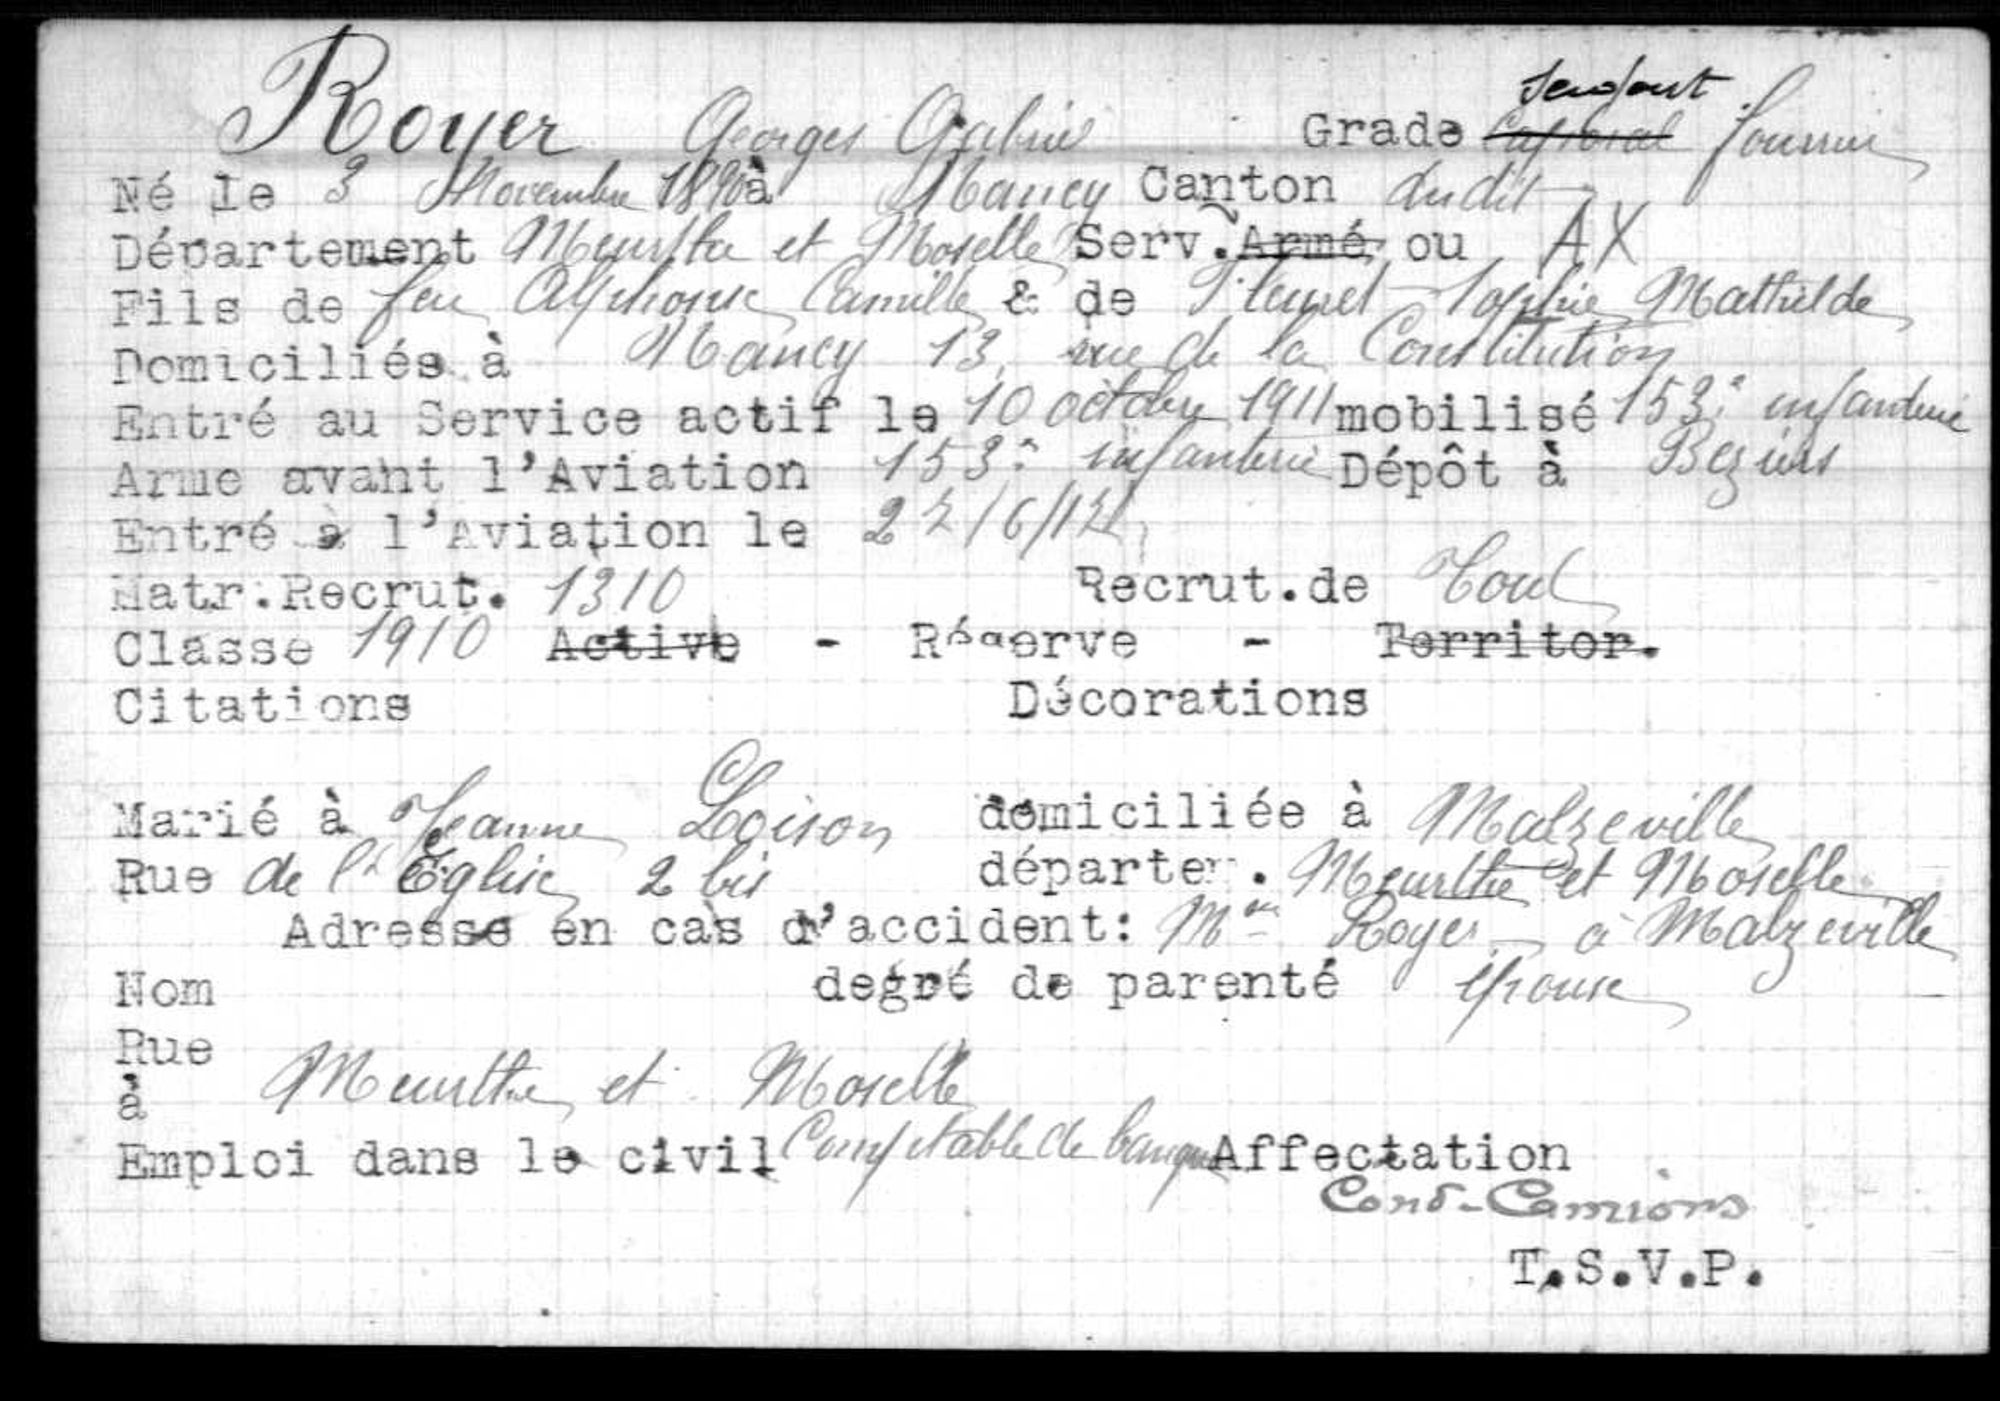 Royer Georges Gabriel Grade Caporal Sergent fourrier
Né le 3 Novembre 1890 à Nancy Canton dudit
Département Meurthe et Moselle Serv. Armé ou AX
Fils de feu Alphonse Camille & de Sophie Mathilde
Domiciliés à Nancy 13, rue de la Constitution
Entré au Service actif le 10 octobre 1911 mobilisé 153e infanterie
Arme avant l'Aviation 153e infanterie Dépôt à Beziers
Entré à l'Aviation le
Matr.Recrut. 1310 Recrut.de Toul
Classe 1910 Active - Réserve - Territor.
Citations Décorations
Marié à Jeanne Loison domiciliée à Malzeville
Rue de l'Église 2 bis départem. Meurthe et Moselle
Adresse en cas d'accident: Mme Royer à Malzeville
Nom degré de parenté épouse
Rue
à Meurthe et Moselle
Emploi dans le civil Comptable de banque Affectation
Cond-Camions
T.S.V.P.